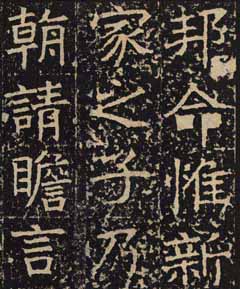 邦命惟新
家之子乃
朝請瞻言